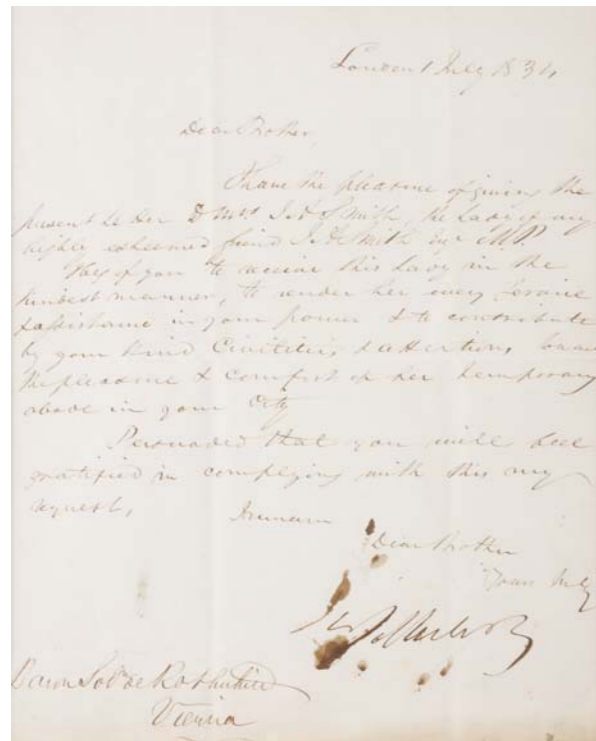 London 1 July 1834
Dear Brother,
I have the pleasure of giving the
present letter to Mrs J. A. Smith, the Lady of my
highly esteemed friend J. A. Smith Esqr M.P.
I beg of you to receive this Lady in the
kindest manner, to render her every Service
& assistance in your power & to contribute
by your kind Civilities & attentions
the pleasure & comfort of her temporary
abode in your City
Persuaded that you will feel
gratified in complying with this my
request,
I remain
Dear Brother
Yours truly
Baron Sol de Rothschild
Vienna